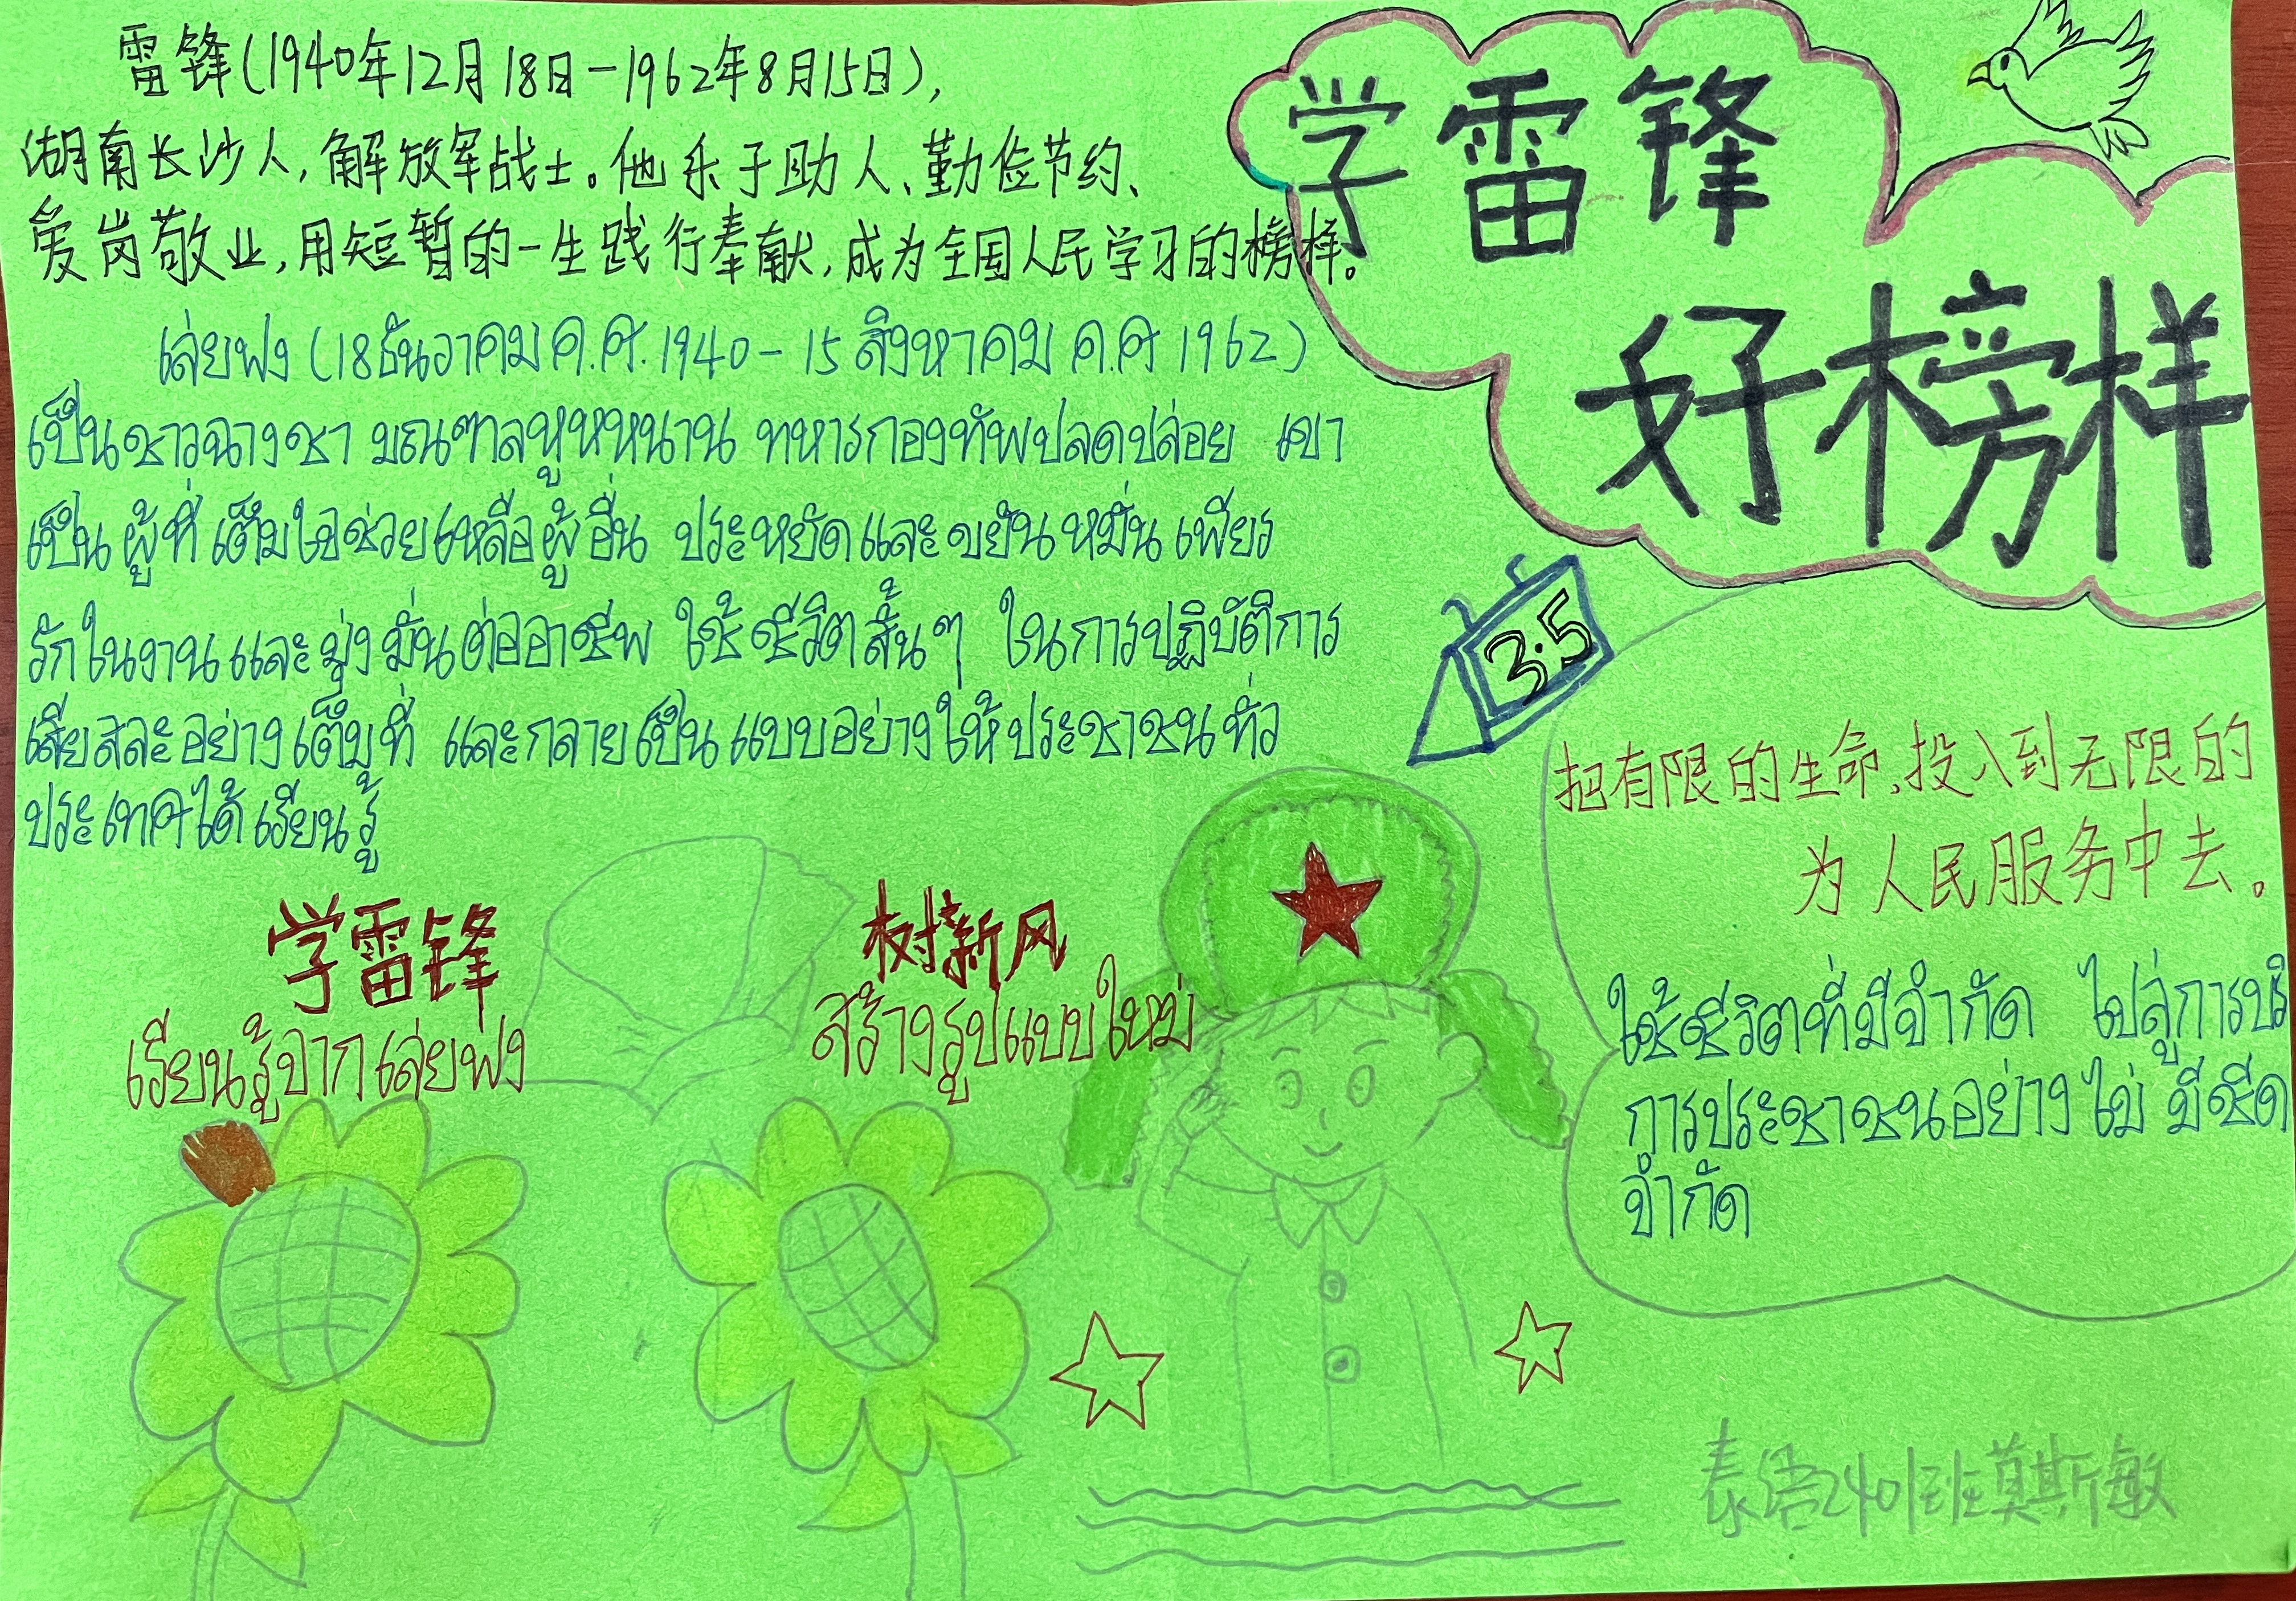 雷锋(1940年12月18日-1962年8月15日),
湖南长沙人,解放军战士。他乐于助人、勤俭节约、
爱岗敬业,用短暂的一生践行奉献,成为全国人民学习的榜样。
เล่ยฟง (18ธันวาคม ค.ศ. 1940 - 15 สิงหาคม ค.ศ 1962)
เป็นชาวฉางชา มณฑาลหูหหนาน ทหารกองทัพปลดปล่อย เขา
เป็นผู้ที่เต็มใจช่วยเหลือผู้อื่น ประหยัดและขยันหมั่นเพียร
รักในงานและมุ่งมั่นต่ออาชีพ ใช้ชีวิตสั้นๆ ในการปฏิบัติการ
เสียสละอย่างเต็มที่ และกลายเป็นแบบอย่างให้ประชาชนทั่ว
ประเทศได้เรียนรู้
学雷锋
好榜样
3.5
把有限的生命,投入到无限的
为人民服务中去。
ใช้ชีวิตที่มีจำกัด ไปสู่การบริ
การประชาชนอย่างไม่มีขีด
จำกัด
学雷锋
เรียนรู้จากเล่ยฟง
树新风
สร้างรูปแบบใหม่
泰语2401班莫斯敏